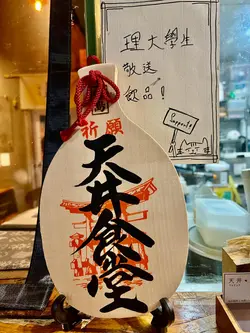 理大學生
敬送
飲品！
Sapporo
祈願
天井食堂
天丼